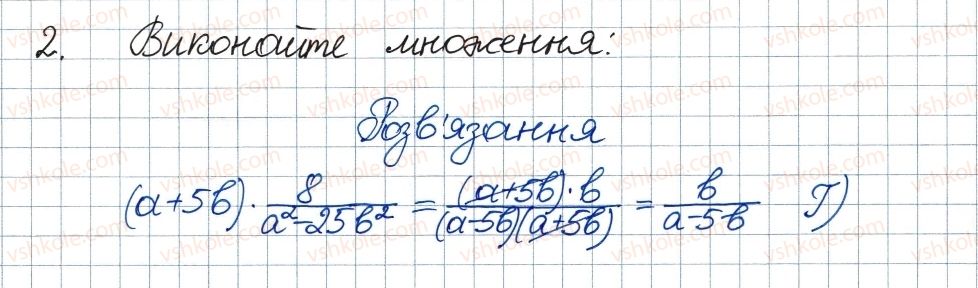 2. Виконайте множення:
Розв'язання
(a+5b) · 8/(a²-25b²) = (a+5b)·b/((a-5b)(a+5b)) = b/(a-5b) Г)